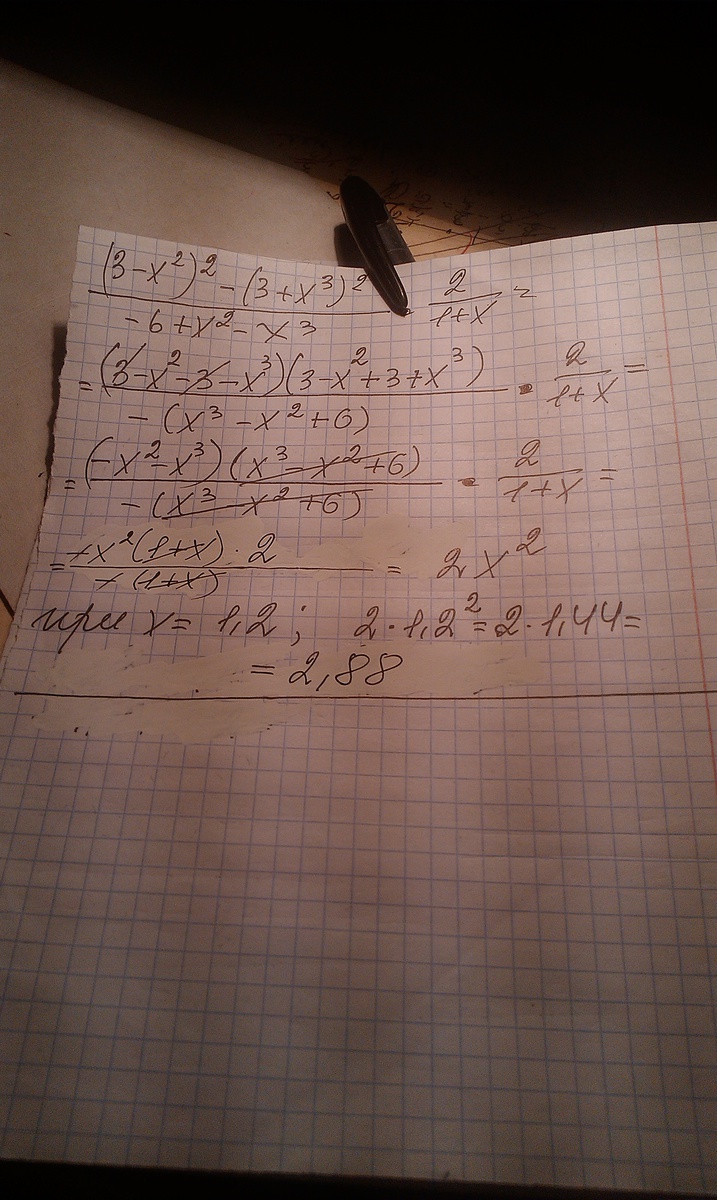 ((3-x²)² - (3+x³)²)/(-6+x²-x³) · 2/(1+x) =
= ((3-x²-3-x³)(3-x²+3+x³))/(-(x³-x²+6)) · 2/(1+x) =
= ((-x²-x³)(x³-x²+6))/(-(x³-x²+6)) · 2/(1+x) =
= (-x²(1+x)·2)/(-(1+x)) = 2x²
при x = 1,2; 2·1,2² = 2·1,44 =
= 2,88